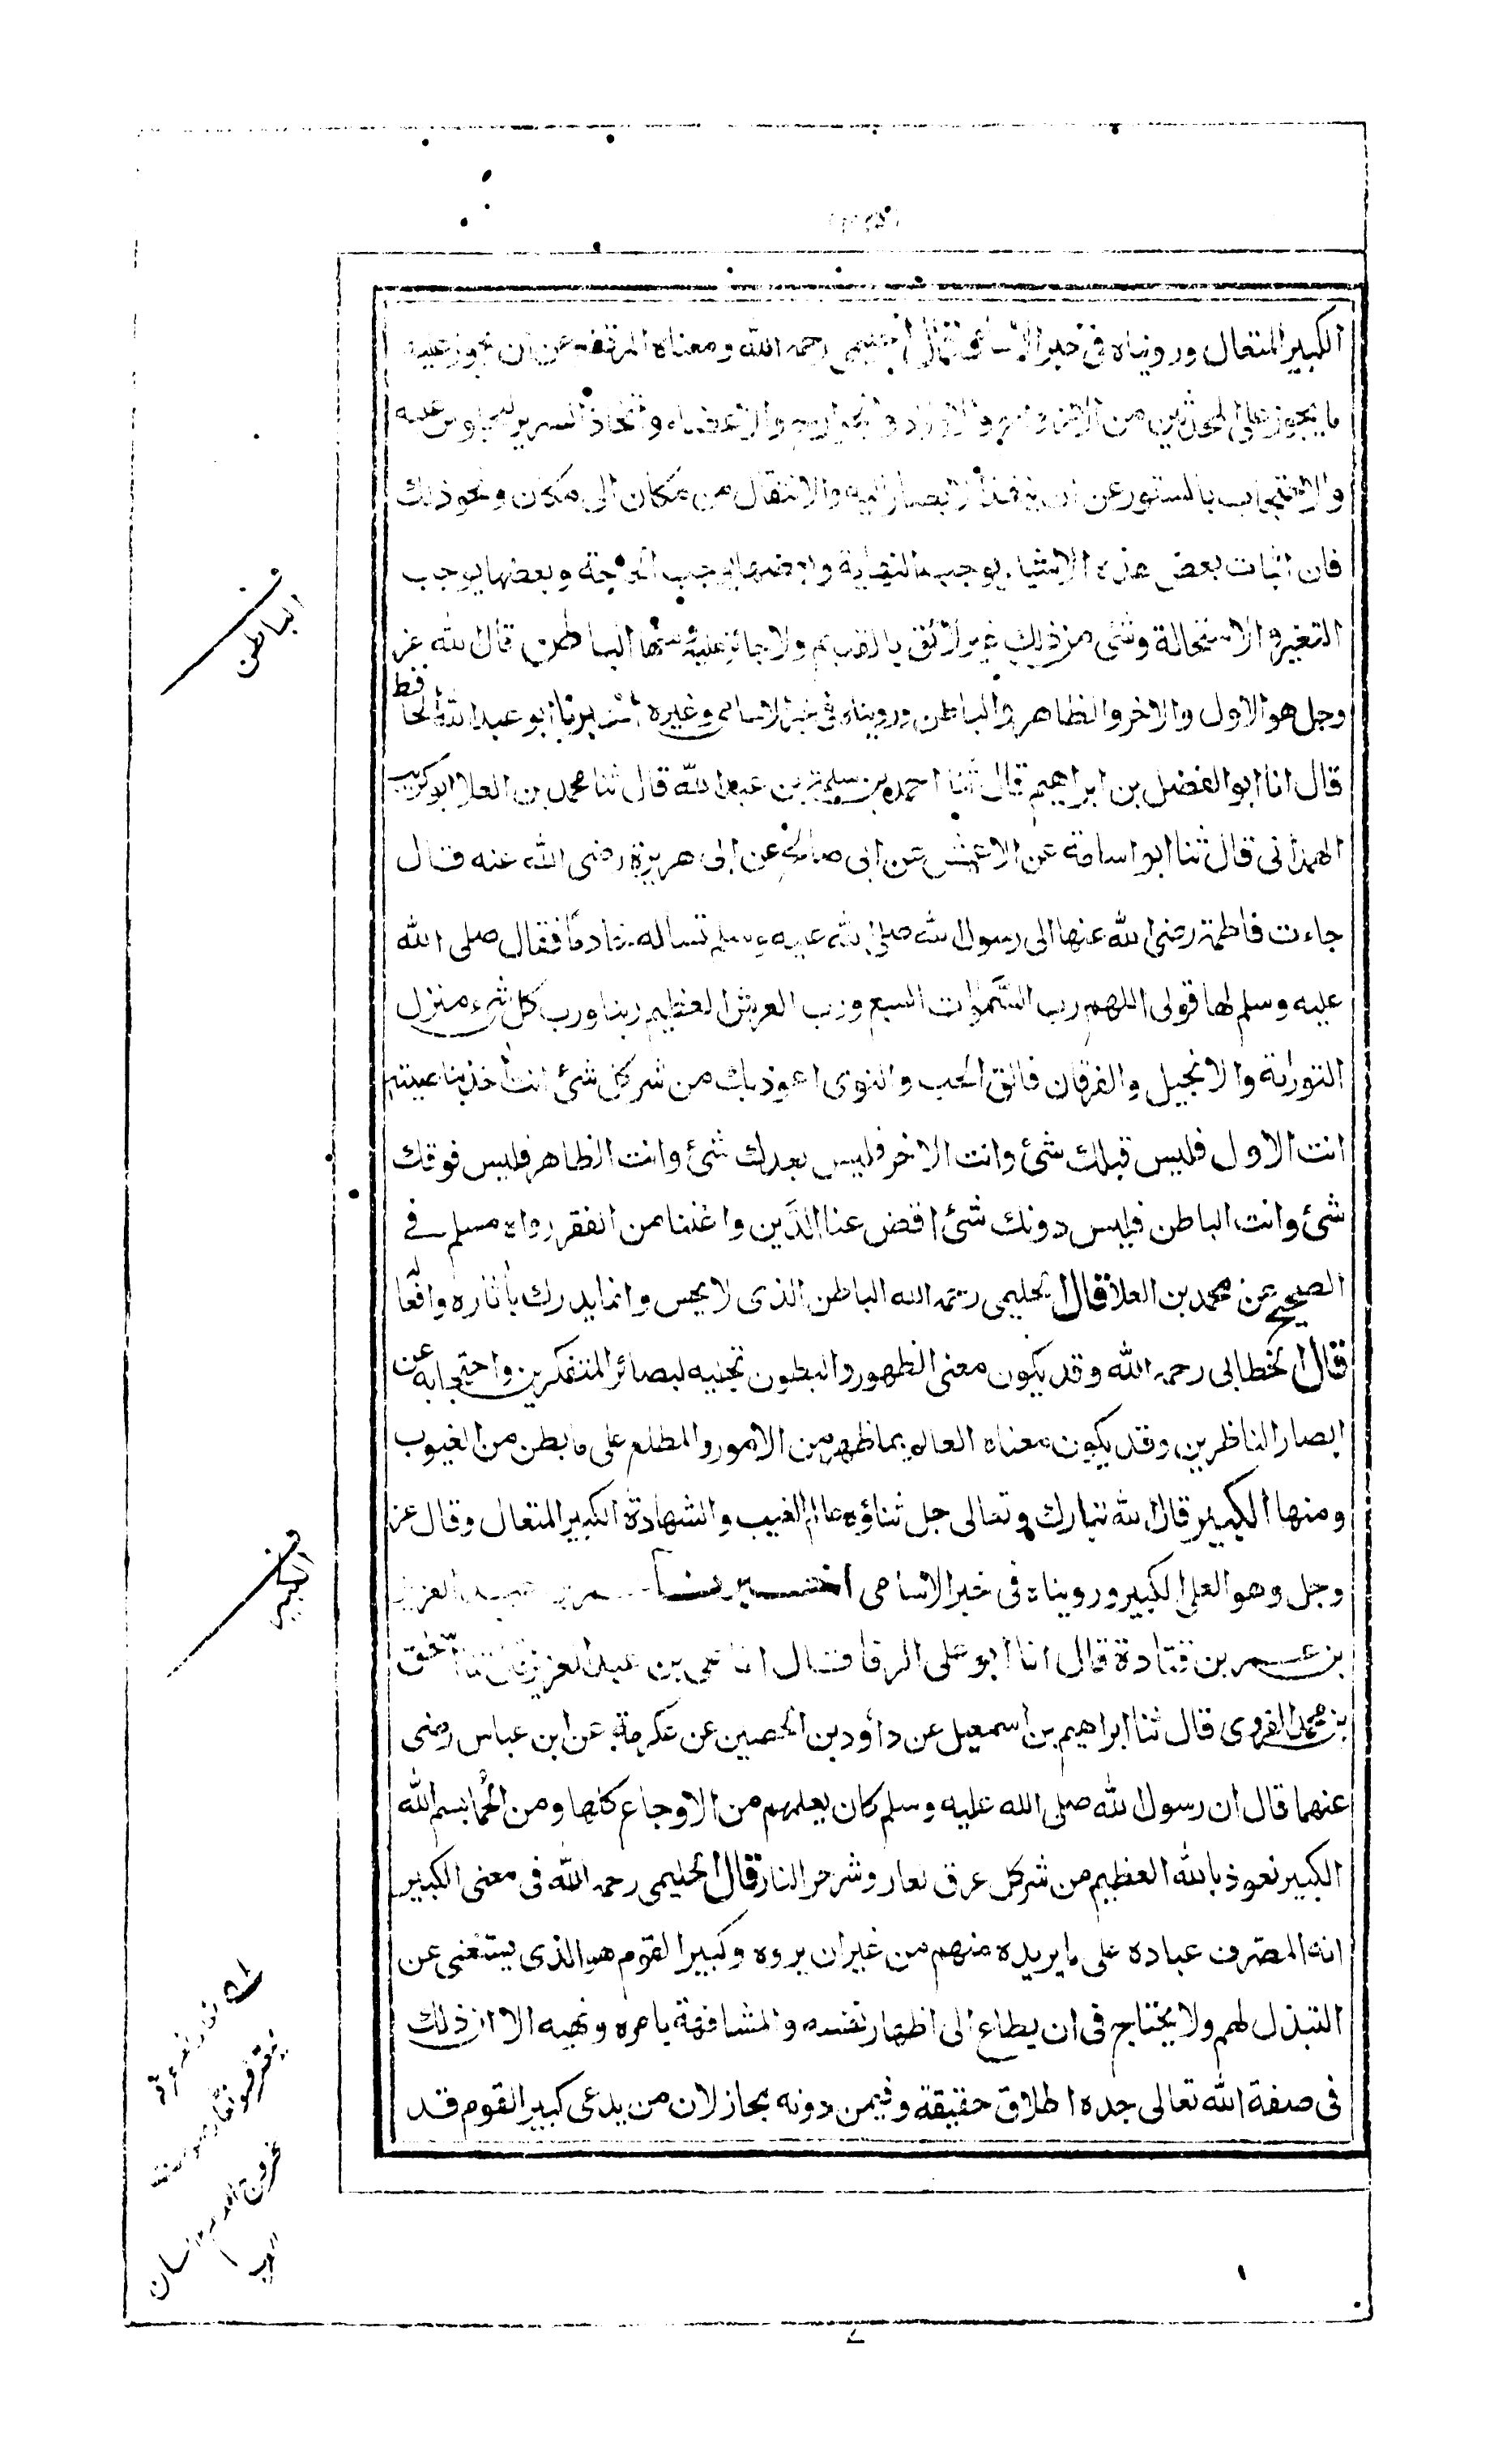 الكبير المتعال ورويناه في خبر الاسامي قال الحليمي رحمه الله ومعناه المرتفع عن ان يجوز عليه
ما يجوز على المحدثين من الازواج والاولاد والجوارح والاعضاء واتخاذ السرير للجلوس عليه
والاحتجاب بالستور عن ان ينفذ الابصار اليه والانتقال من مكان الى مكان ونحو ذلك
فان اثبات بعض هذه الاشياء يوجب النهاية وبعضها يوجب الحاجة وبعضها يوجب
التغير والاستحالة وشئ من ذلك غير لائق بالقديم ولا جائز عليه ومنها الباطن قال الله عز
وجل هو الاول والاخر والظاهر والباطن ورويناه في خبر الاسامي وغيره اخبرنا ابو عبد الله الحافظ
قال انا ابو الفضل بن ابراهيم قال ثنا احمد بن سلمة بن عبد الله قال ثنا محمد بن العلا ابو كريب
الهمداني قال ثنا ابو اسامة عن الاعمش عن ابي صالح عن ابي هريرة رضى الله عنه قال
جاءت فاطمة رضى الله عنها الى رسول الله صلى الله عليه وسلم تساله خادمًا فقال صلى الله
عليه وسلم لها قولى اللهم رب السَّمٰوات السبع ورب العرش العظيم ربنا ورب كل شئ منزل
التوراتة والانجيل والفرقان فالق الحب والنوى اعوذ بك من شر كل شئ انت اخذ بناصيته
انت الاول فليس قبلك شئ وانت الاخر فليس بعدك شئ وانت الظاهر فليس فوقك
شئ وانت الباطن فليس دونك شئ اقض عنا الدَّين واغننا من الفقر رواه مسلم في
الصحيح عن محمد بن العلا قال الحليمى رحمه الله الباطن الذى لا يحس وانما يدرك بأثاره وافعا
قال الخطابى رحمه الله وقد يكون معنى الظهور والبطون تجليه لبصائر المتفكرين واحتجابه عن
ابصار الناظرين وقد يكون معناه العالم بما ظهر من الامور والمطلع على ما بطن من الغيوب
ومنها الكبير قال الله تبارك وتعالى جل ثناؤه عالم الغيب والشهادة الكبير المتعال وقال عز
وجل وهو العلى الكبير ورويناه فى خبر الاسامى اخبرنا عمر بن عبد العزيز
بن عمر بن قتادة قال انا ابو على الرفا قال انا على بن عبد العزيز قال ثنا اسحٰق
بن محمد الفروى قال ثنا ابراهيم بن اسمعيل عن دأود بن الحصين عن عكرمة عن ابن عباس رضى
عنهما قال ان رسول الله صلى الله عليه وسلم كان يعلمهم من الاوجاع كلها ومن الحُما بسم الله
الكبير نعوذ بالله العظيم من شر كل عرق نعار وشر حر النار قال الحليمى رحمه الله فى معنى الكبير
انه المصرف عباده على ما يريده منهم من غير ان يروه وكبير القوم هو الذى يستغنى عن
التبذل لهم ولا يحتاج فى ان يطاع الى اظهار نفسه والمشافهة بامره ونهيه الا ان ذلك
فى صفة الله تعالى جده اطلاق حقيقة وفيمن دونه مجاز لان من يدعى كبير القوم قد
الباطن
الكبير